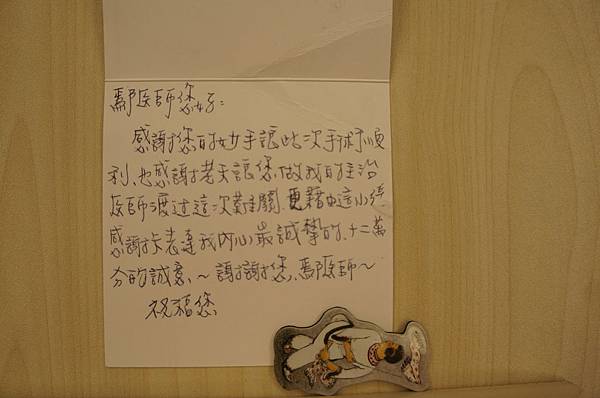 鄢医師您好:
感謝您的妙手讓此次手術順
利、也感謝老天讓您做我的主治
医師渡过這次難關、更藉由這小小
感謝卡表達我內心最誠摯的、十二萬
分的誠意、~ 謝謝您、鄢医師~
祝福您